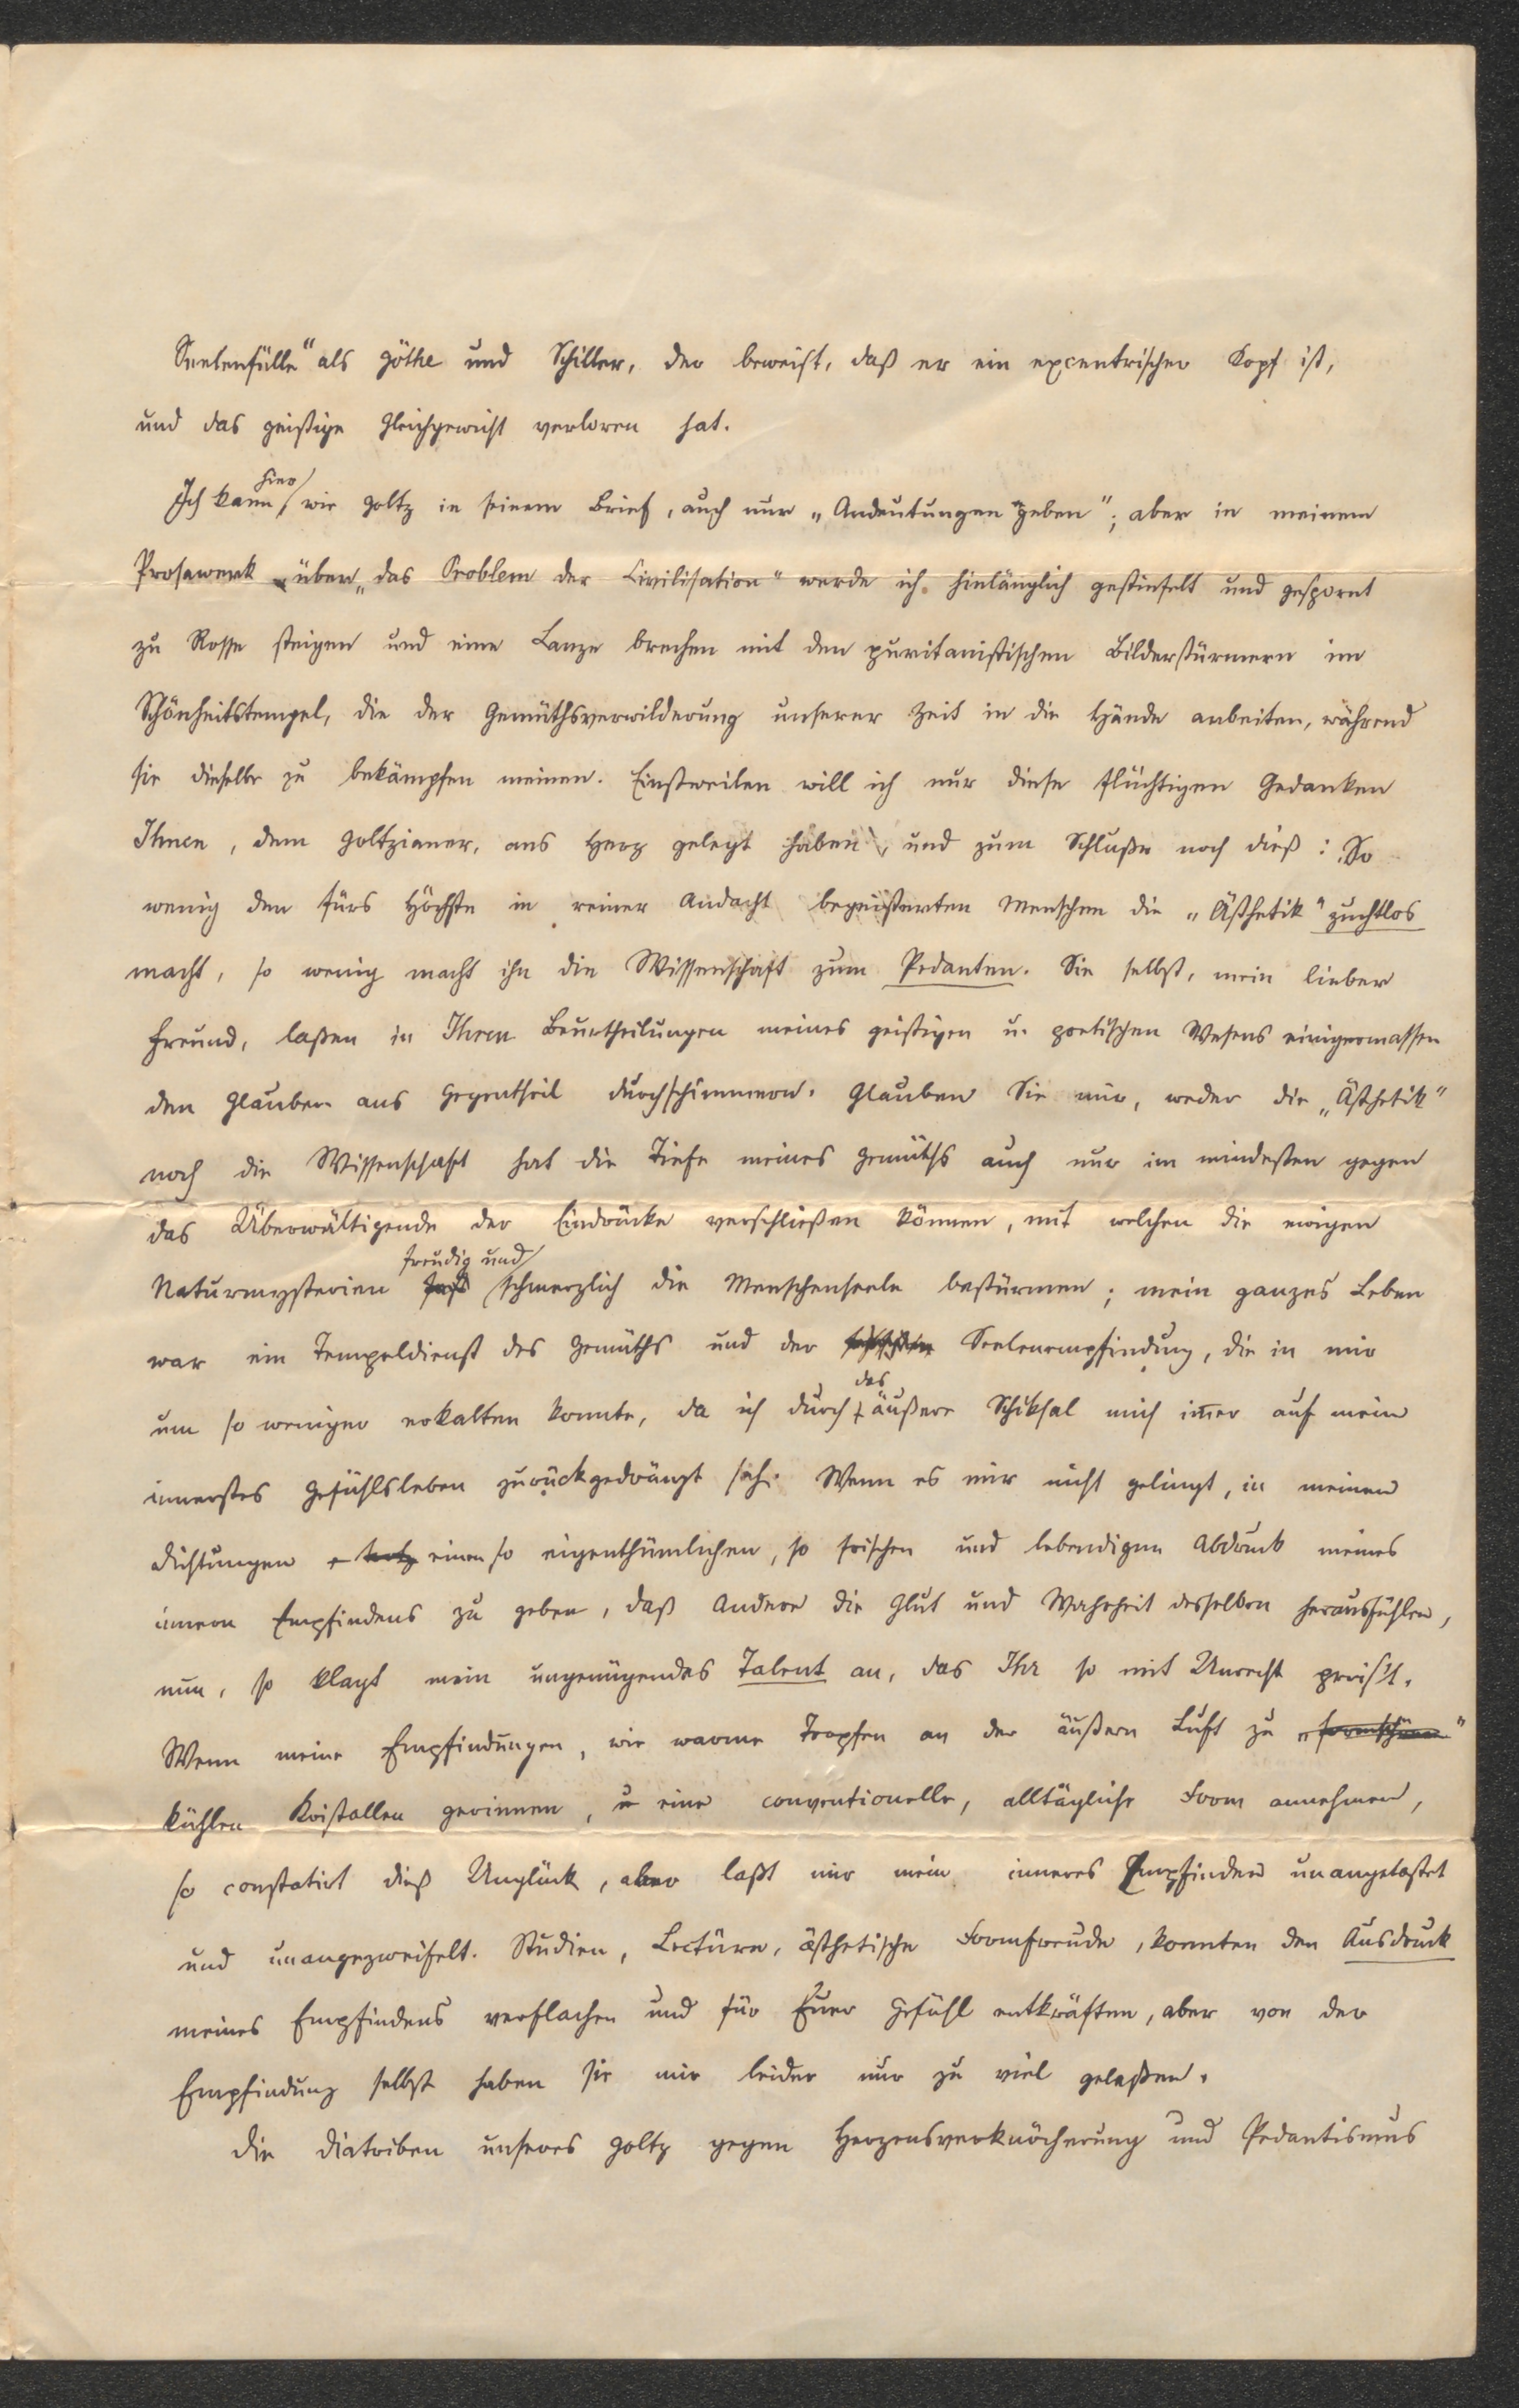 Seelenfülle" als Göthe und Schiller, der beweist, daß er ein excentrischer Kopf ist,
und das geistige Gleichgewicht verloren hat.
hier
Ich kann, wie Goltz in seinem Brief, auch nur „Andeutungen geben"; aber in meinem
Prosawerk über „das Problem der Civilisation" werde ich hinlänglich gestiefelt und gespornt
zu Rosse steigen und eine Lanze brechen mit den puritanistischen Bilderstürmern im
Schönheitstempel, die der Gemüthsverwilderung unserer Zeit in die Hände arbeiten, während
sie dieselbe zu bekämpfen meinen. Einstweilen will ich nur diese flüchtigen Gedanken
Ihnen, dem Goltzianer, ans Herz gelegt haben, und zum Schluße noch dieß: So
wenig den fürs Höchste in reiner Andacht begeisterten Menschen die „Ästhetik" zuchtlos
macht, so wenig macht ihn die Wissenschaft zum Pedanten. Sie selbst, mein lieber
Freund, laßen in Ihren Beurtheilungen meines geistigen u. poetischen Wesens einigermassen
den Glauben ans Gegentheil durchschimmern. Glauben Sie mir, weder die „Ästhetik"
noch die Wissenschaft hat die Tiefe meines Gemüths auch nur im mindesten gegen
das Überwältigende der Eindrücke verschließen können, mit welchen die ewigen
freudig und
Naturmysterien schmerzlich die Menschenseele bestürmen; mein ganzes Leben
war ein Tempeldienst des Gemüths und der Seelenempfindung, die in mir
das
um so weniger erkalten konnte, da ich durch äußere Schiksal mich immer auf mein
innerstes Gefühlsleben zurückgedrängt sah. Wenn es mir nicht gelingt, in meinen
Dichtungen einen so eigenthümlichen, so frischen und lebendigen Abdruck meines
innern Empfindens zu geben, daß Andere die Glut und Wahrheit desselben herausfühlen,
nun, so klagt mein ungenügendes Talent an, das Ihr so mit Unrecht preis't.
Wenn meine Empfindungen, wie warme Tropfen an der äußern Luft zu „formschönen"
kühlen Kristallen gerinnen, u eine conventionelle, alltägliche Form annehmen,
so constatirt dieß Unglück, aber laßt mir mein inneres Empfinden unangetastet
und unangezweifelt. Studien, Lectüre, ästhetische Formfreude, konnten den Ausdruck
meines Empfindens verflachen und für Euer Gefühl entkräften, aber von der
Empfindung selbst haben sie mir leider nur zu viel gelaßen.
Die Diatriben unseres Goltz gegen Herzensverknöcherung und Pedantismus